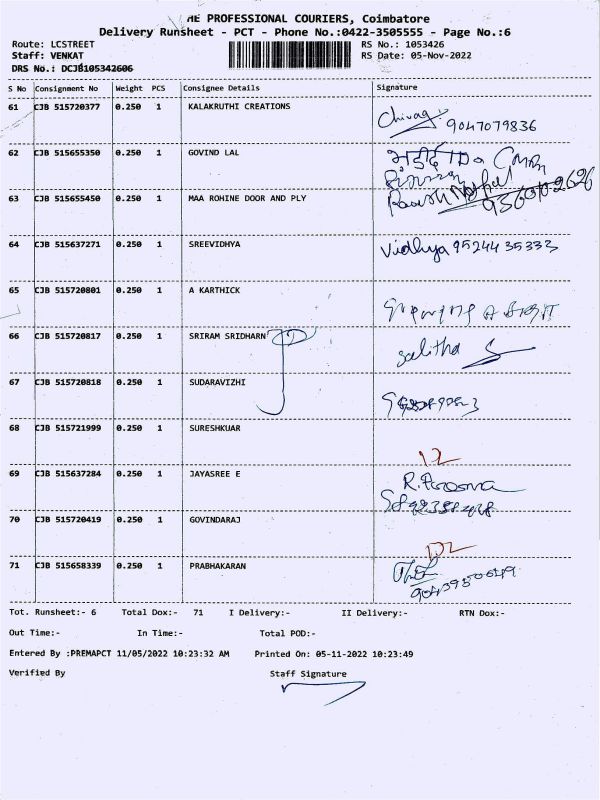 HE PROFESSIONAL COURIERS, Coimbatore
Delivery Runsheet - PCT - Phone No.:0422-3505555 - Page No.:6
Route: LCSTREET RS No.: 1053426
Staff: VENKAT RS Date: 05-Nov-2022
DRS No.: DCJB105342606
S No Consignment No Weight PCS Consignee Details Signature
61 CJB 515720377 0.250 1 KALAKRUTHI CREATIONS
9047079836
62 CJB 515655350 0.250 1 GOVIND LAL
63 CJB 515655450 0.250 1 MAA ROHINE DOOR AND PLY
64 CJB 515637271 0.250 1 SREEVIDHYA Vidhya 9524435333
65 CJB 515720801 0.250 1 A KARTHICK
66 CJB 515720817 0.250 1 SRIRAM SRIDHARN
Salitha
67 CJB 515720818 0.250 1 SUDARAVIZHI
68 CJB 515721999 0.250 1 SURESHKUAR
69 CJB 515637284 0.250 1 JAYASREE E
70 CJB 515720419 0.250 1 GOVINDARAJ
71 CJB 515658339 0.250 1 PRABHAKARAN
Tot. Runsheet:- 6 Total Dox:- 71 I Delivery:- II Delivery:- RTN Dox:-
Out Time:- In Time:- Total POD:-
Entered By :PREMAPCT 11/05/2022 10:23:32 AM Printed On: 05-11-2022 10:23:49
Verified By Staff Signature